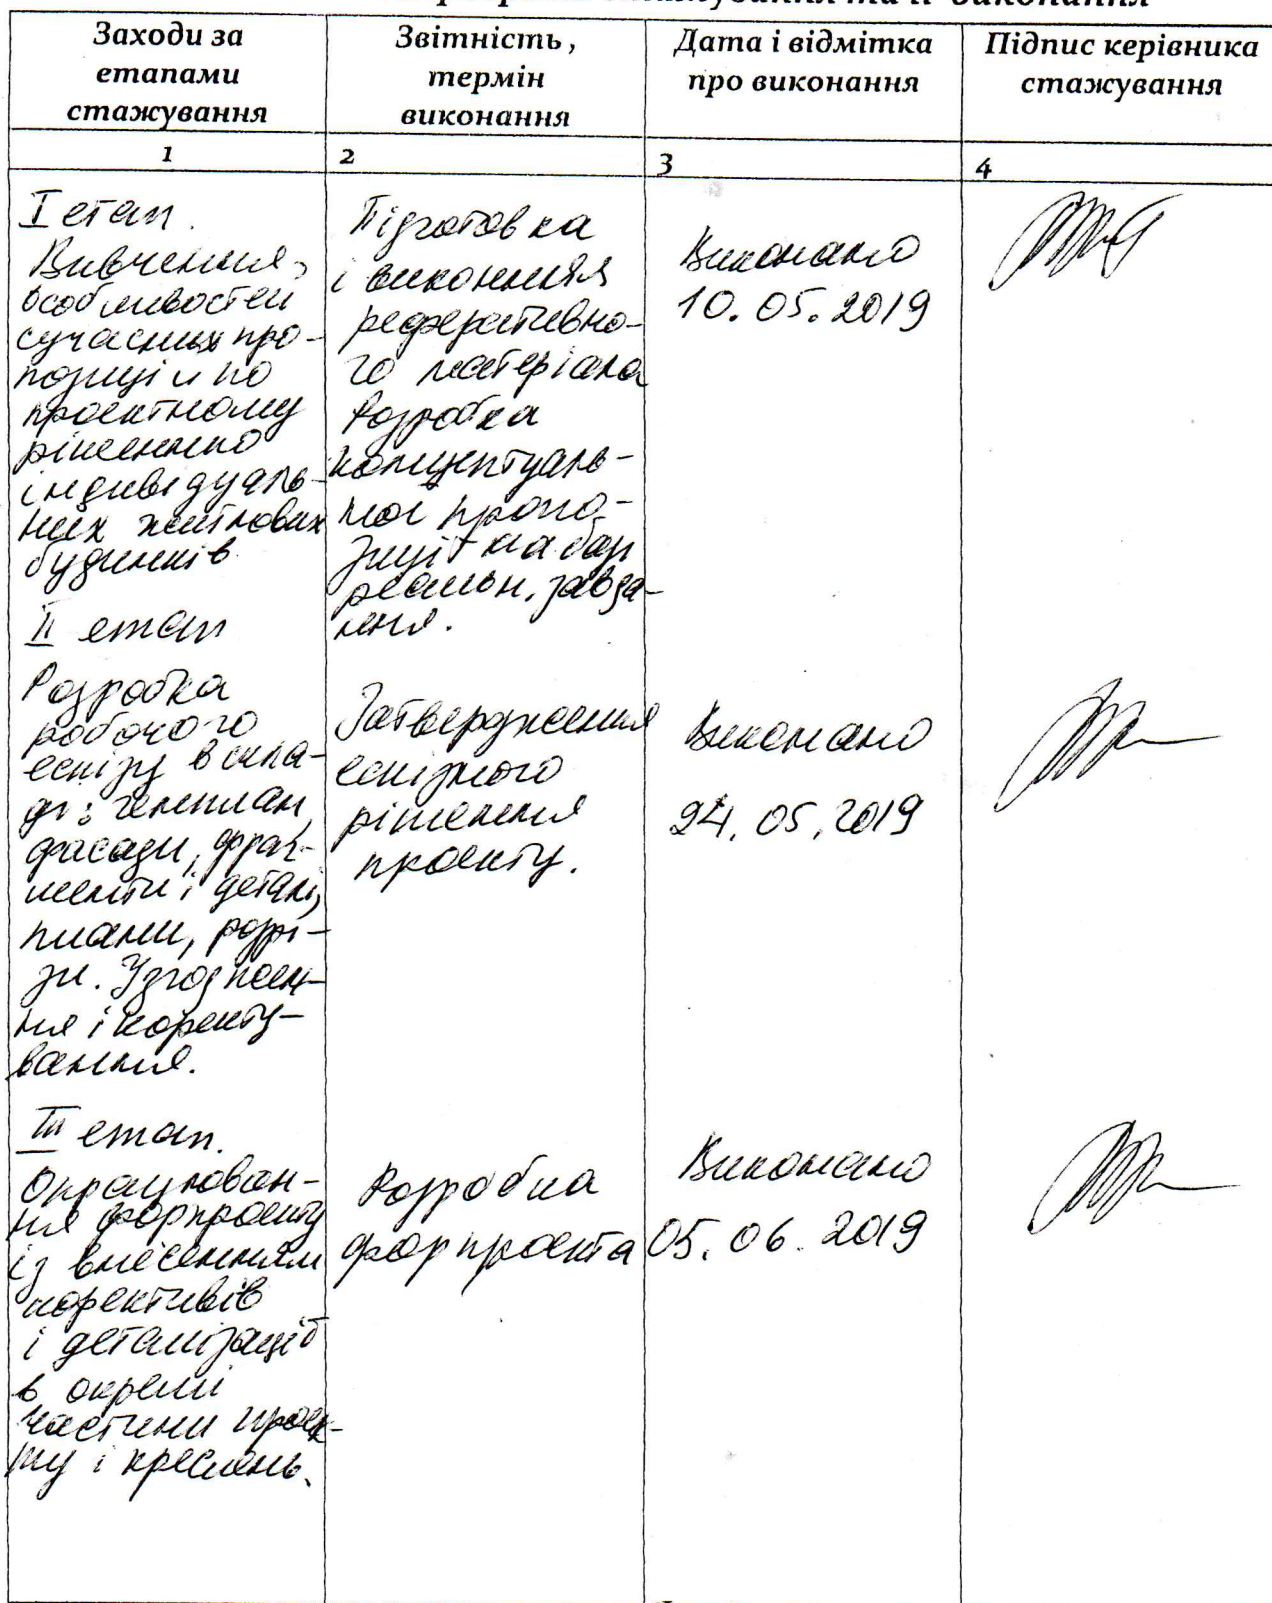 стажування та її виконання
Заходи за
етапами
стажування
Звітність,
термін
виконання
Дата і відмітка
про виконання
Підпис керівника
стажування
1
2
3
4
I етап.
Вивчення
особливостей
сучасних про-
позицій по
проектному
рішенню
індивідуаль-
них житлових
будинків
Підготовка
і виконання
реферативно-
го матеріала
Розробка
концептуаль-
ної пропо-
зиції на базі
реальн. завда-
ння.
Виконано
10.05.2019
II етап
Розробка
робочого
ескізу в скла-
ді: генплан,
фасади, фраг-
менти і деталі,
плани, розрі-
зи. Узгоджен-
ня і коректу-
вання.
Затвердження
ескізного
рішення
проекту.
Виконано
24.05.2019
III етап.
Опрацюван-
ня форпроекту
із внесенням
корективів
і деталізацій
в окремі
частини проек-
ту і креслень.
Розробка
форпроекта
Виконано
05.06.2019